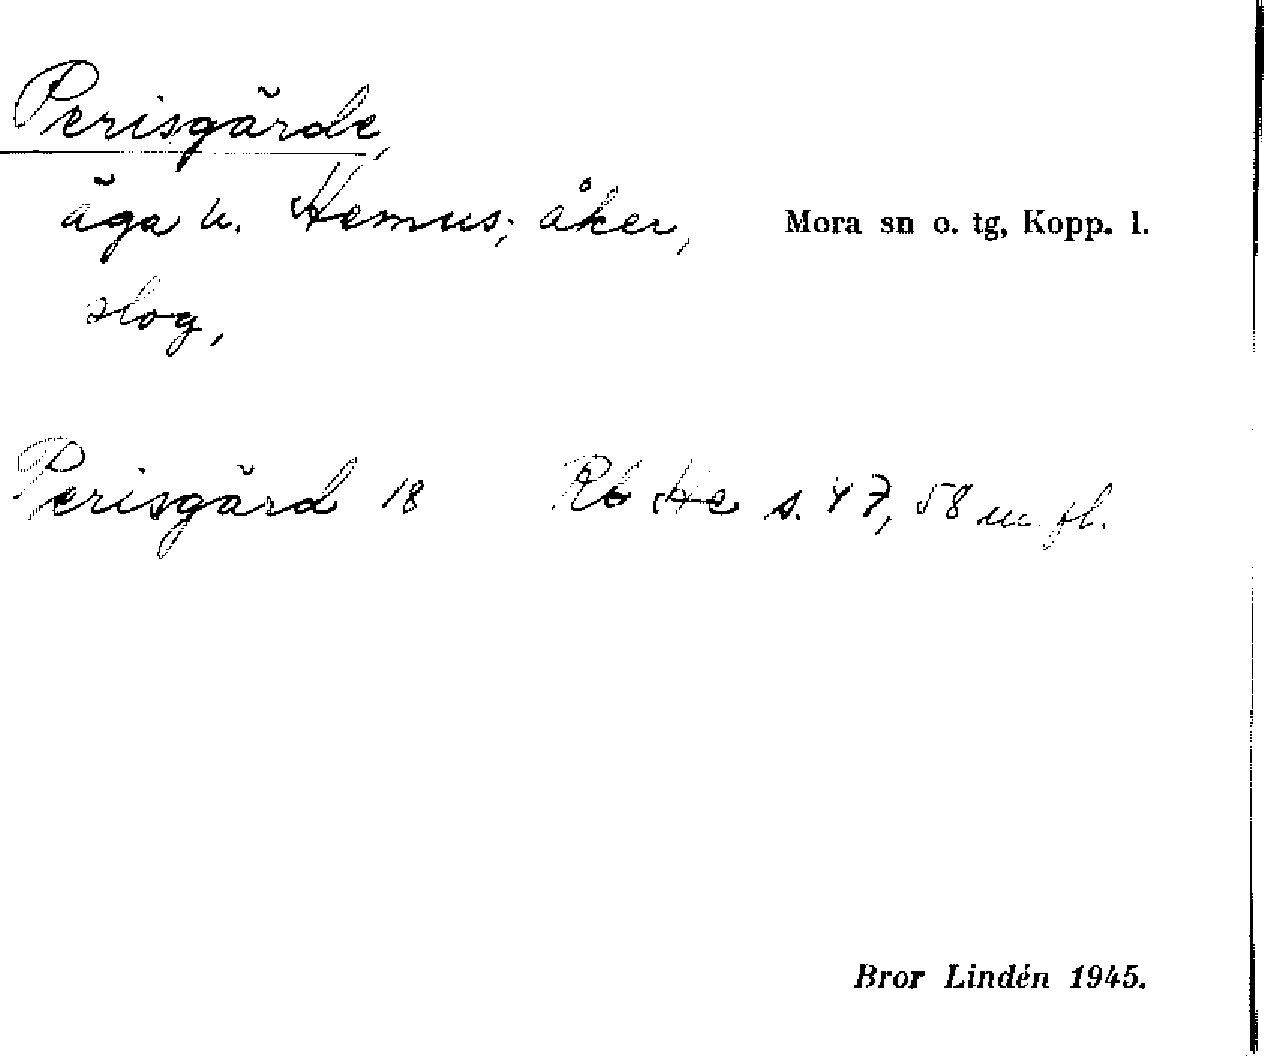 Perisgärde,
äga u. Hemus; åker,
Mora sn o. tg, Kopp. l.
slog,
Perisgärd 18 Rb He s. 47, 58 m fl.
Bror Lindén 1945.